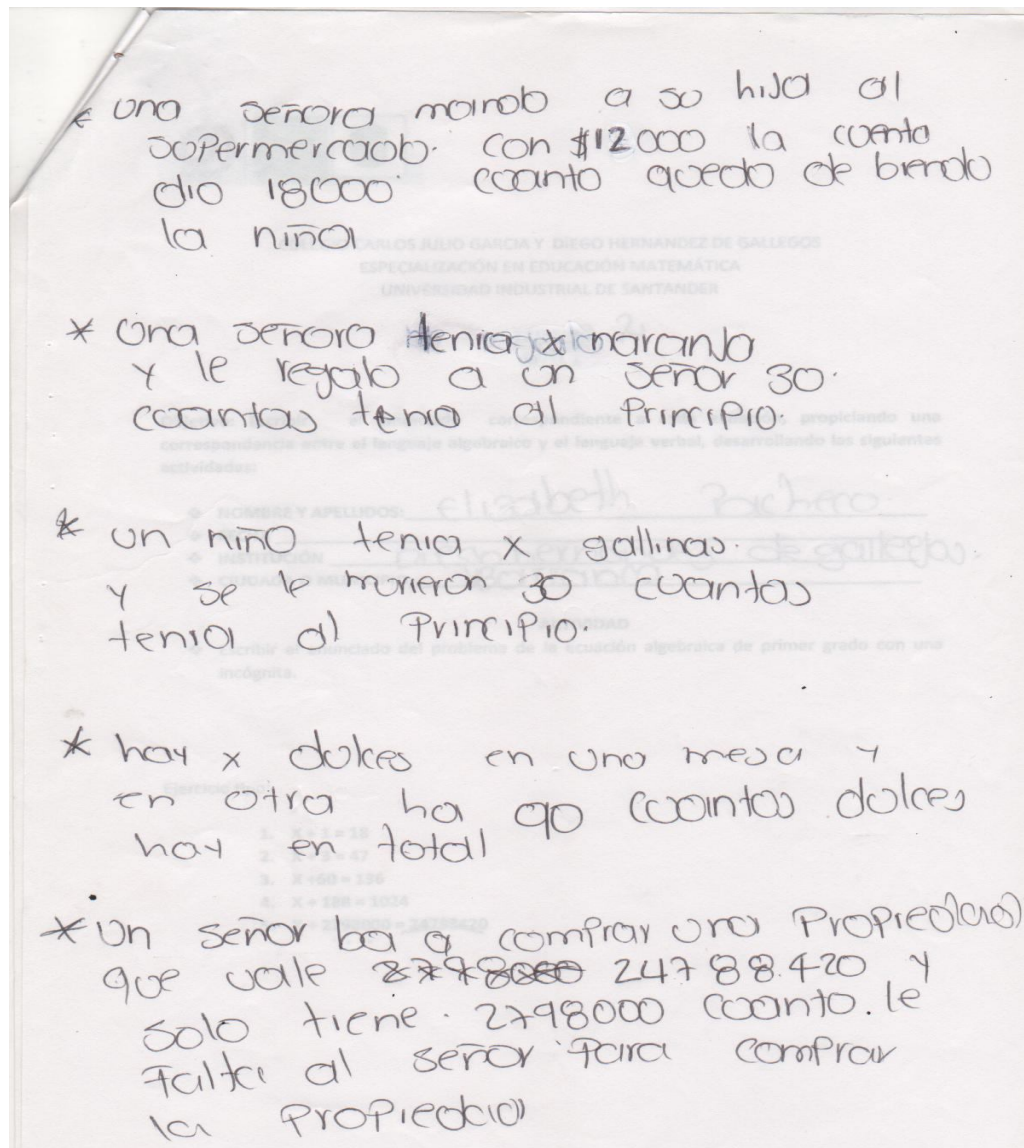 * una señora mando a so hija al
sopermercado. con $12000 la cuenta
dio 18000 cuanto quedo de biendo
la niña
CARLOS JULIO GARCIA Y DIEGO HERNANDEZ DE GALLEGOS
ESPECIALIZACIÓN EN EDUCACIÓN MATEMÁTICA
UNIVERSIDAD INDUSTRIAL DE SANTANDER
* una señora tenia x naranja
y le regalo a un señor 30.
cuantas tenia al principio.
correspondiente propiciando una
correspondencia entre el lenguaje algebraico y el lenguaje verbal, desarrollando las siguientes
actividades:
NOMBRE Y APELLIDOS: Elizabeth Pacheco
* un niño tenia x gallinas.
INSTITUCIÓN de gallegos.
y se le murieron 30 cuantas
tenia al principio.
Escribir el enunciado del problema de la ecuación algebraica de primer grado con una
incógnita.
* hay x dulces en una mesa y
en otra ha 90 cuantos dulces
hay en total
1. X + = 18
2. X + = 47
3. X +60 = 156
4. X + 188 = 1024
* Un señor ba a comprar una propiedad
que valle 2798000 24788.420 y
solo tiene. 2798000 cuanto. le
falta al señor para comprar
la propiedad